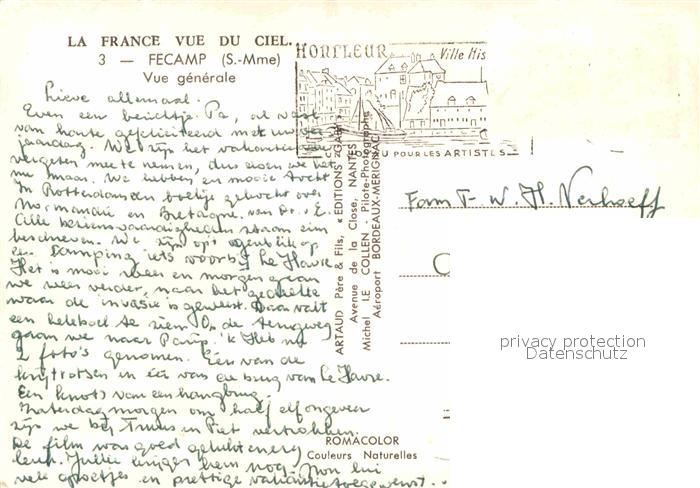 LA FRANCE VUE DU CIEL.
3 — FECAMP (S.-Mme)
Vue générale
HONFLEUR Ville His
POUR LES ARTISTES
ARTAUD Père & Fils, « EDITIONS GABY »
Avenue de la Close, NANTES
Michel LE COLLEN - Pilote-Photographe
Aéroport BORDEAUX-MERIGNAC
Lieve allemaal.
Even een berichtje. Pa, al vast
van harte gefeliciteerd met uw
jaardag. We zijn het vakantie
vergeten mee te nemen, dus doen we het
nu maar. We hebben een mooie tocht
In Rotterdam een boekje gekocht over
Normandië en Bretagne, van Dr. v. E.
Alle bezienswaardigheden staan erin
beschreven. We zijn op 't ogenblik op
een camping iets voorbij Le Havre.
Het is mooi weer en morgen gaan
we weer verder, naar het gedeelte
waar de invasie is geweest. Daar valt
een heleboel te zien. Op de terugweg
gaan we naar Parijs. 'k Heb nu
2 foto's genomen. Eén van de
krijtrotsen en één van de brug van Le Havre.
Een knots van een hangbrug.
Zaterdagmorgen om half elf ongeveer
zijn we bij Truus en Piet vertrokken.
De film was goed gelukt en erg
leuk. Jullie krijgen hem nog. Non lui
vele groetjes en prettige vakantie toegewenst.
Fam F. W. H. Verhoeff
ROMACOLOR
Couleurs Naturelles
privacy protection
Datenschutz